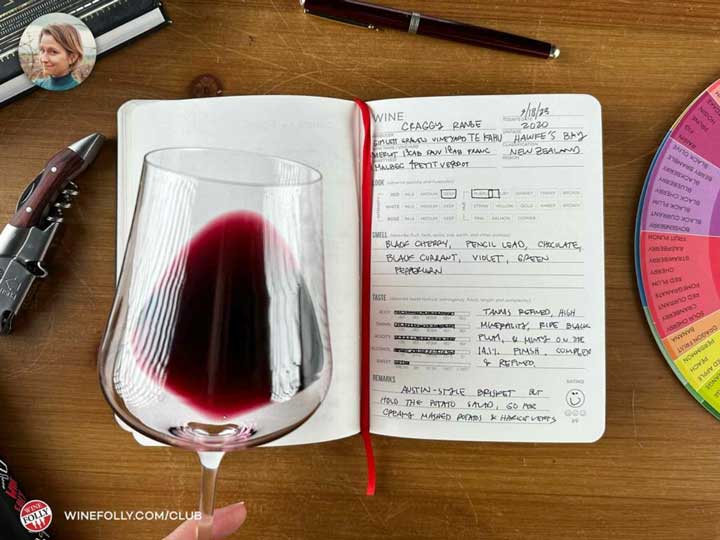 WINE
CRAGGY RANGE
TODAY'S DATE
9/18/23
2020
GIMLETT GRAVELS VINEYARD TE KAHU
HAWKE'S BAY
MERLOT CAB SAUV CAB FRANC
NEW ZEALAND
MALBEC & PETIT VERDOT
LOOK
RED PALE MEDIUM DEEP PURPLE RUBY GARNET TAWNY BROWN
WHITE PALE MEDIUM DEEP STRAW YELLOW GOLD AMBER BROWN
ROSÉ PALE MEDIUM DEEP PINK SALMON COPPER
SMELL
BLACK CHERRY, PENCIL LEAD, CHOCOLATE,
BLACK CURRANT, VIOLET, GREEN
PEPPERCORN
TASTE
BODY
TANNIN
ACIDITY
ALCOHOL
SWEET
TANNINS REFINED, HIGH
MINERALITY, RIPE BLACK
PLUM, & MINTY ON THE
FINISH. COMPLEX
& REFINED.
REMARKS
RATING
AUSTIN-STYLE BRISKET BUT
HOLD THE POTATO SALAD, GO FOR
CREAMY MASHED POTATOS & HARICOT VERTS
69
FIG
BLACK OLIVE
BERRY BRAMBLE
BLACKBERRY
BLUEBERRY
BLACK CHERRY
BLACK PLUM
BLACK CURRANT
BOYSENBERRY
FRUIT PUNCH
RASPBERRY
STRAWBERRY
CHERRY
RED PLUM
POMEGRANATE
RED CURRANT
CRANBERRY
SOUR CHERRY
DRAGON FRUIT
BANANA
PERSIMMON
PEACH
RED APPLE
WINE FOLLY
WINEFOLLY.COM/CLUB